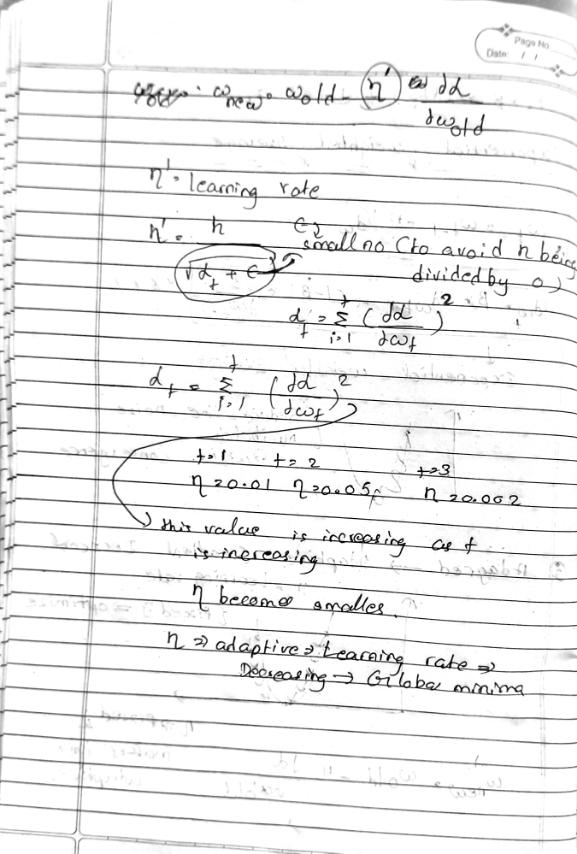 Page No
Date / /
ω new = ω old - η' ∂L
∂ω old
η' = learning rate
η' = η
√α_t + ε
ε → small no (to avoid η being
divided by 0)
α_t = Σ_{i=1}^{t} (∂L / ∂ω_t)²
α_t = Σ_{i=1}^{t} (∂L / ∂ω_t)²
t=1 t=2 t=3
η=0.01 η=0.05 η=0.002
this value is increasing as t
is increasing
η becomes smaller.
η ⇒ adaptive ⇒ Learning rate ⇒
Decreasing → Global minima